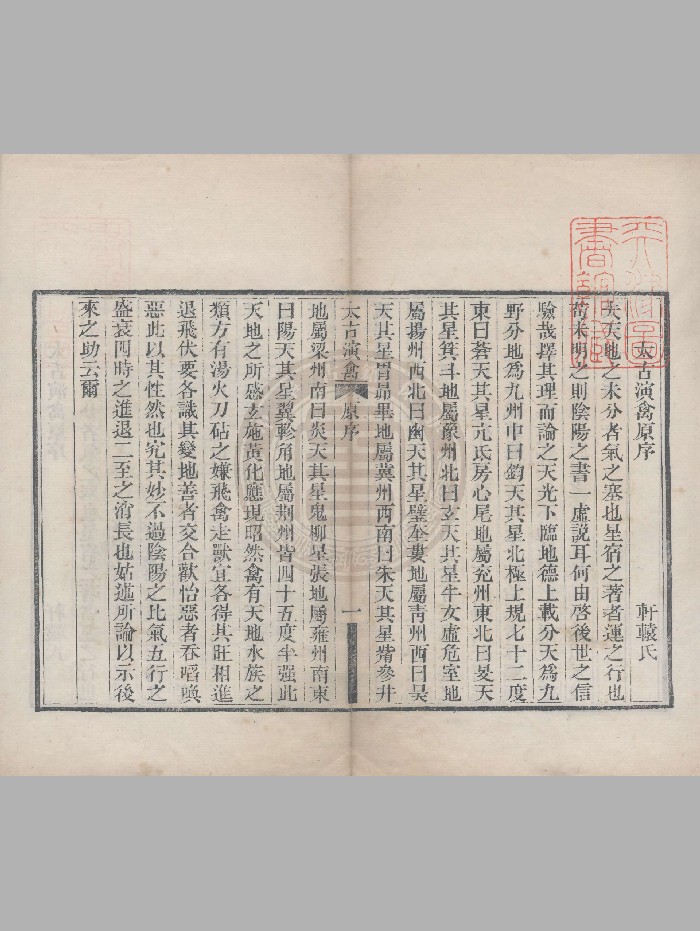 太古演禽原序
軒轅氏
夫天地之未分者氣之塞也星宿之著者運之行也
苟未明之則陰陽之書一虛說耳何由啓後世之信
驗哉擇其理而論之天光下臨地德上載分天爲九
野分地爲九州中曰鈞天其星北極上規七十二度
東曰蒼天其星亢氐房心尾地屬兗州東北曰旻天
其星箕斗地屬豫州北曰玄天其星牛女虛危室地
屬揚州西北曰幽天其星璧奎婁地屬青州西曰昊
天其星胃昴畢地屬冀州西南曰朱天其星觜參井
太古演禽
原序
一
地屬梁州南曰炎天其星鬼柳星張地屬雍州南東
曰陽天其星翼軫角地屬荆州皆四十五度半強此
天地之所感玄施黄化應現昭然禽有天地水族之
類方有湯火刀砧之嫌飛禽走獸宜各得其旺相進
退飛伏要各識其變地善者交合歡怡惡者吞啗喚
惡此以其性然也究其妙不過陰陽之比氣五行之
盛衰四時之進退二至之消長也姑述所論以示後
來之助云爾